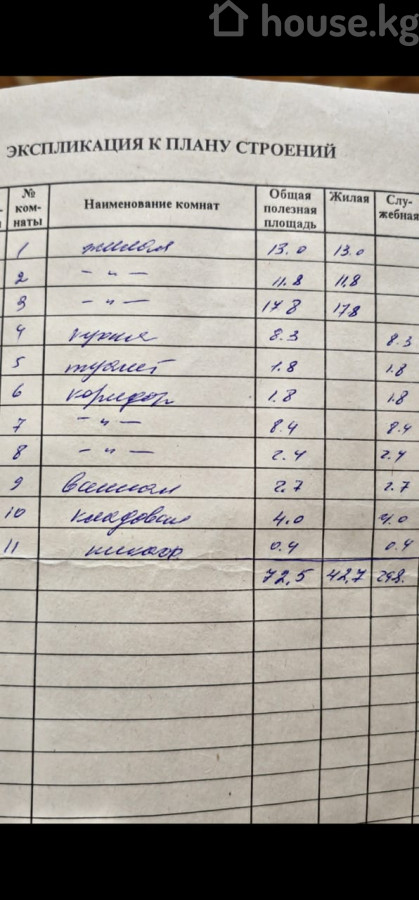 house.kg
ЭКСПЛИКАЦИЯ К ПЛАНУ СТРОЕНИЙ
№ ком-наты Наименование комнат Общая полезная площадь Жилая Слу-жебная
1 жилая 13.0 13.0
2 — " — 11.8 11.8
3 — " — 17.8 17.8
4 кухня 8.3 8.3
5 туалет 1.8 1.8
6 коридор 1.8 1.8
7 — " — 8.4 8.4
8 — " — 2.4 2.4
9 ванная 2.7 2.7
10 кладовая 4.0 4.0
11 0.4 0.4
72,5 42,7 29.8